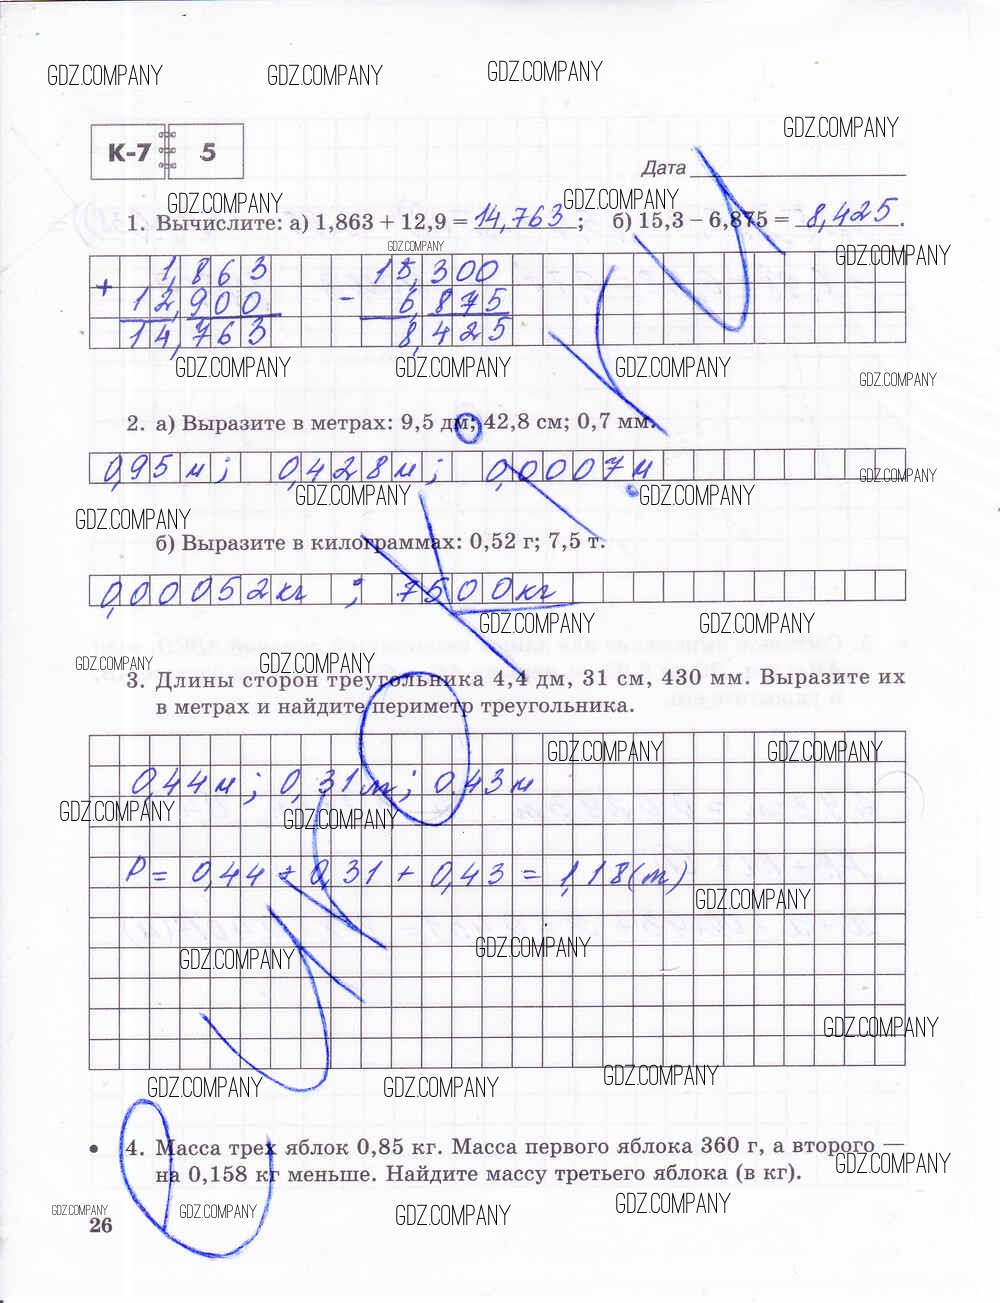 GDZ.COMPANY GDZ.COMPANY GDZ.COMPANY
GDZ.COMPANY
К-7 5
Дата
GDZ.COMPANY GDZ.COMPANY
1. Вычислите: а) 1,863 + 12,9 = 14,763; б) 15,3 – 6,875 = 8,425.
GDZ.COMPANY GDZ.COMPANY
1,863 15,300
+ 12,900 – 6,875
14,763 8,425
GDZ.COMPANY GDZ.COMPANY GDZ.COMPANY GDZ.COMPANY
2. а) Выразите в метрах: 9,5 дм; 42,8 см; 0,7 мм.
0,95 м; 0,428 м; 0,0007 м
GDZ.COMPANY
GDZ.COMPANY GDZ.COMPANY GDZ.COMPANY
б) Выразите в килограммах: 0,52 г; 7,5 т.
0,00052 кг ; 7500 кг
GDZ.COMPANY GDZ.COMPANY
GDZ.COMPANY GDZ.COMPANY
3. Длины сторон треугольника 4,4 дм, 31 см, 430 мм. Выразите их
в метрах и найдите периметр треугольника.
GDZ.COMPANY GDZ.COMPANY
0,44 м; 0,31 м; 0,43 м
GDZ.COMPANY GDZ.COMPANY
P = 0,44 + 0,31 + 0,43 = 1,18 (м)
GDZ.COMPANY
GDZ.COMPANY GDZ.COMPANY
GDZ.COMPANY
GDZ.COMPANY GDZ.COMPANY GDZ.COMPANY
• 4. Масса трех яблок 0,85 кг. Масса первого яблока 360 г, а второго —
на 0,158 кг меньше. Найдите массу третьего яблока (в кг).
GDZ.COMPANY
GDZ.COMPANY GDZ.COMPANY GDZ.COMPANY GDZ.COMPANY
26